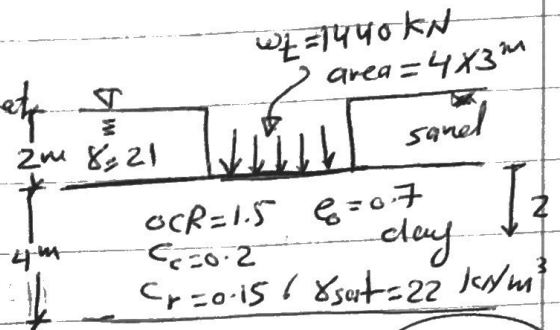 wt=1440 kN
area = 4×3 m
2m γ=21
sand
OCR=1.5 e₀=0.7
clay
2
4m
Cc=0.2
Cr=0.15 , γsat=22 kN/m³